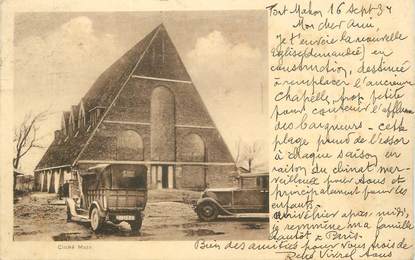 Fort Mahon 16 Sept 34
Mon cher Ami,
Je t'envoie la nouvelle
Eglise (demandée) en
construction, destinée
à remplacer l'ancienne
Chapelle, trop petite
pour contenir l'afflux
des Baigneurs – cette
plage prend de l'essor
à chaque saison en
raison du climat mer-
veilleux pour tous et
principalement pour les
enfants.
après-midi,
je ramène ma famille
à Paris
Bien des amitiés pour vous trois de
René
Cliché Mazo